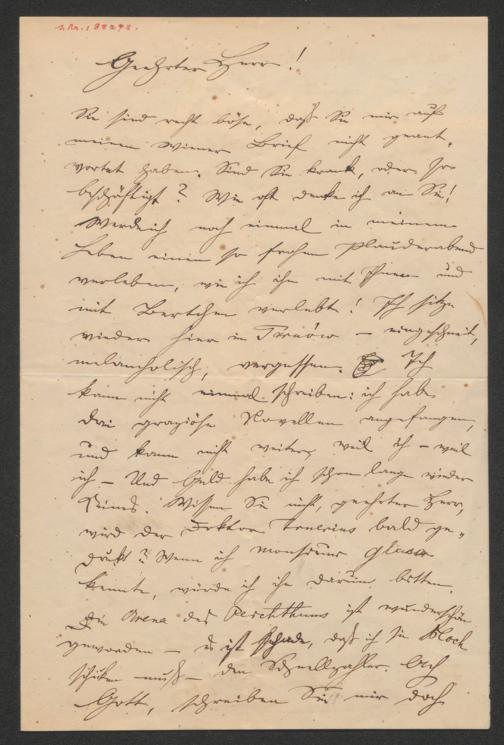 J. Nr. 188293.
Geehrter Herr!
Sie sind recht böse, daß Sie mir auf
meinen Wiener Brief nicht geant-
wortet haben. Sind Sie krank, oder so
beschäftigt? Wie oft denke ich an Sie!
Werde ich noch einmal in meinem
Leben einen so frohen Plauderabend
verleben, wie ich ihn mit Ihnen und
mit Bertchen verlebte! Ich sitze
wieder hier in – eingeschneit,
melancholisch, vergessen. Ich
kann nicht einmal schreiben: ich habe
drei graziöse Novellen angefangen,
und kann nicht weiter, weil ich – weil
ich – Und Geld habe ich schon lange wieder
keins. Wissen Sie nicht, geehrter Herr,
wird der Doktor bald ge-
druckt? Wenn ich monsieur
kennte, würde ich ihn darum bitten.
Die des ist wunderschön
geworden – es ist schade, daß ich sie Bloch
schicken muß – dem Schnellzahler. Ach
Gott, schreiben Sie mir doch